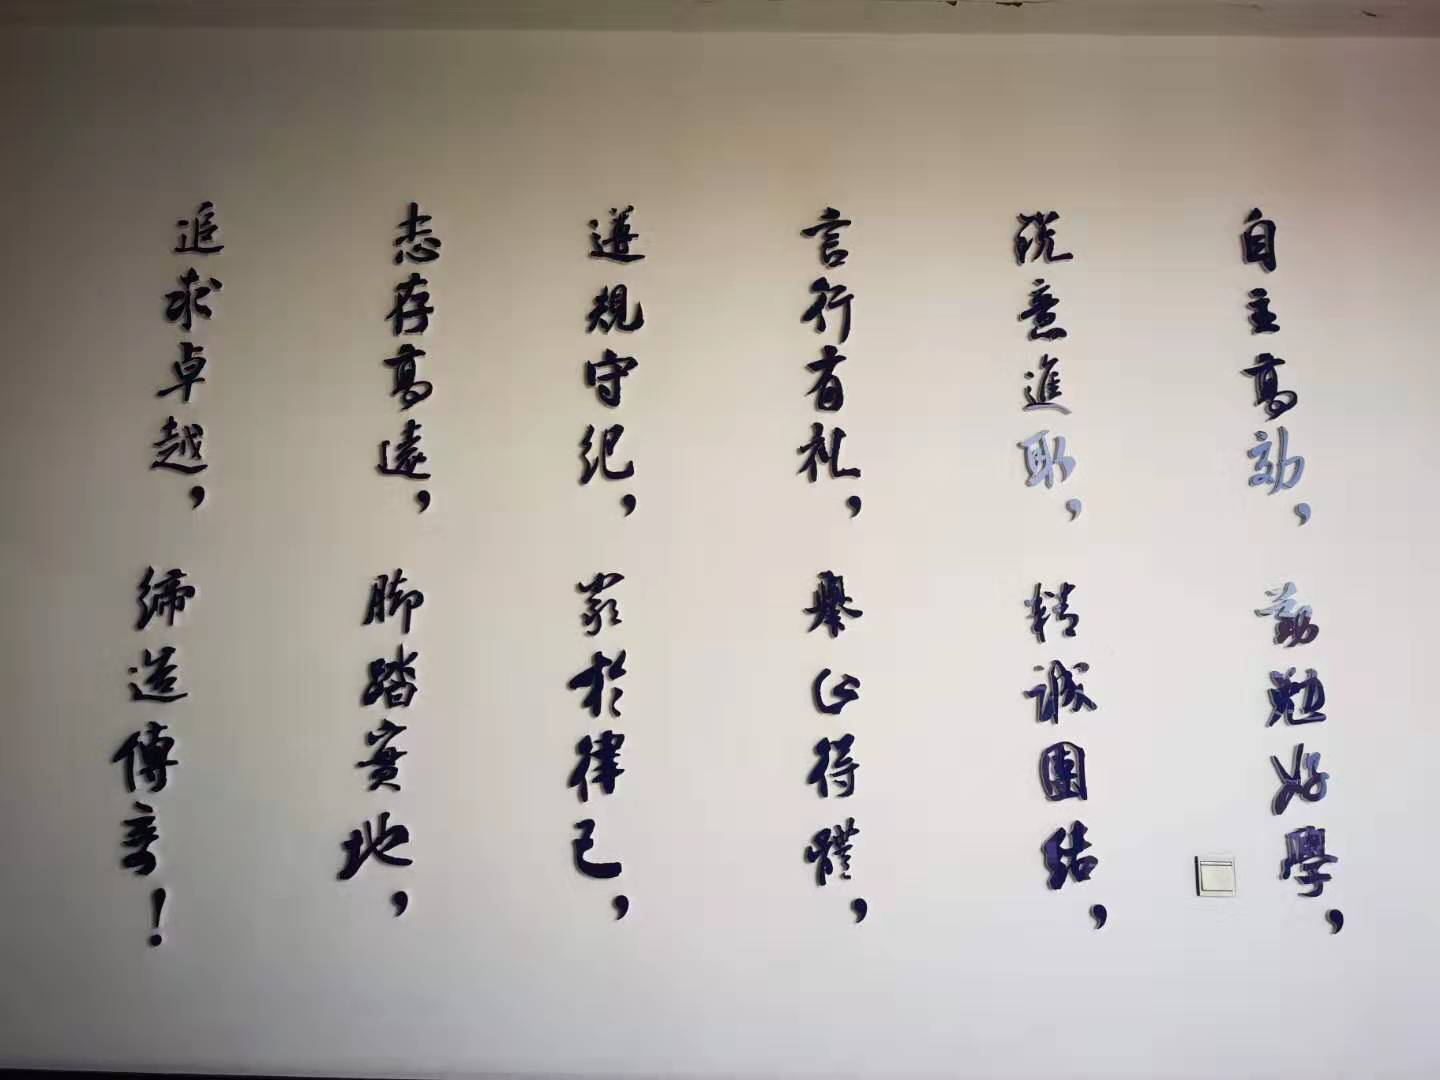 自主高効，勤勉好學，
锐意進取，精誠團结，
言行有礼，舉止得體，
遵規守纪，嚴於律己，
志存高遠，脚踏實地，
追求卓越，缔造傳奇！